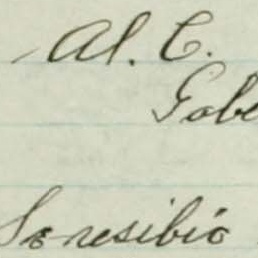 Al. C.
Gobe
Se resibió